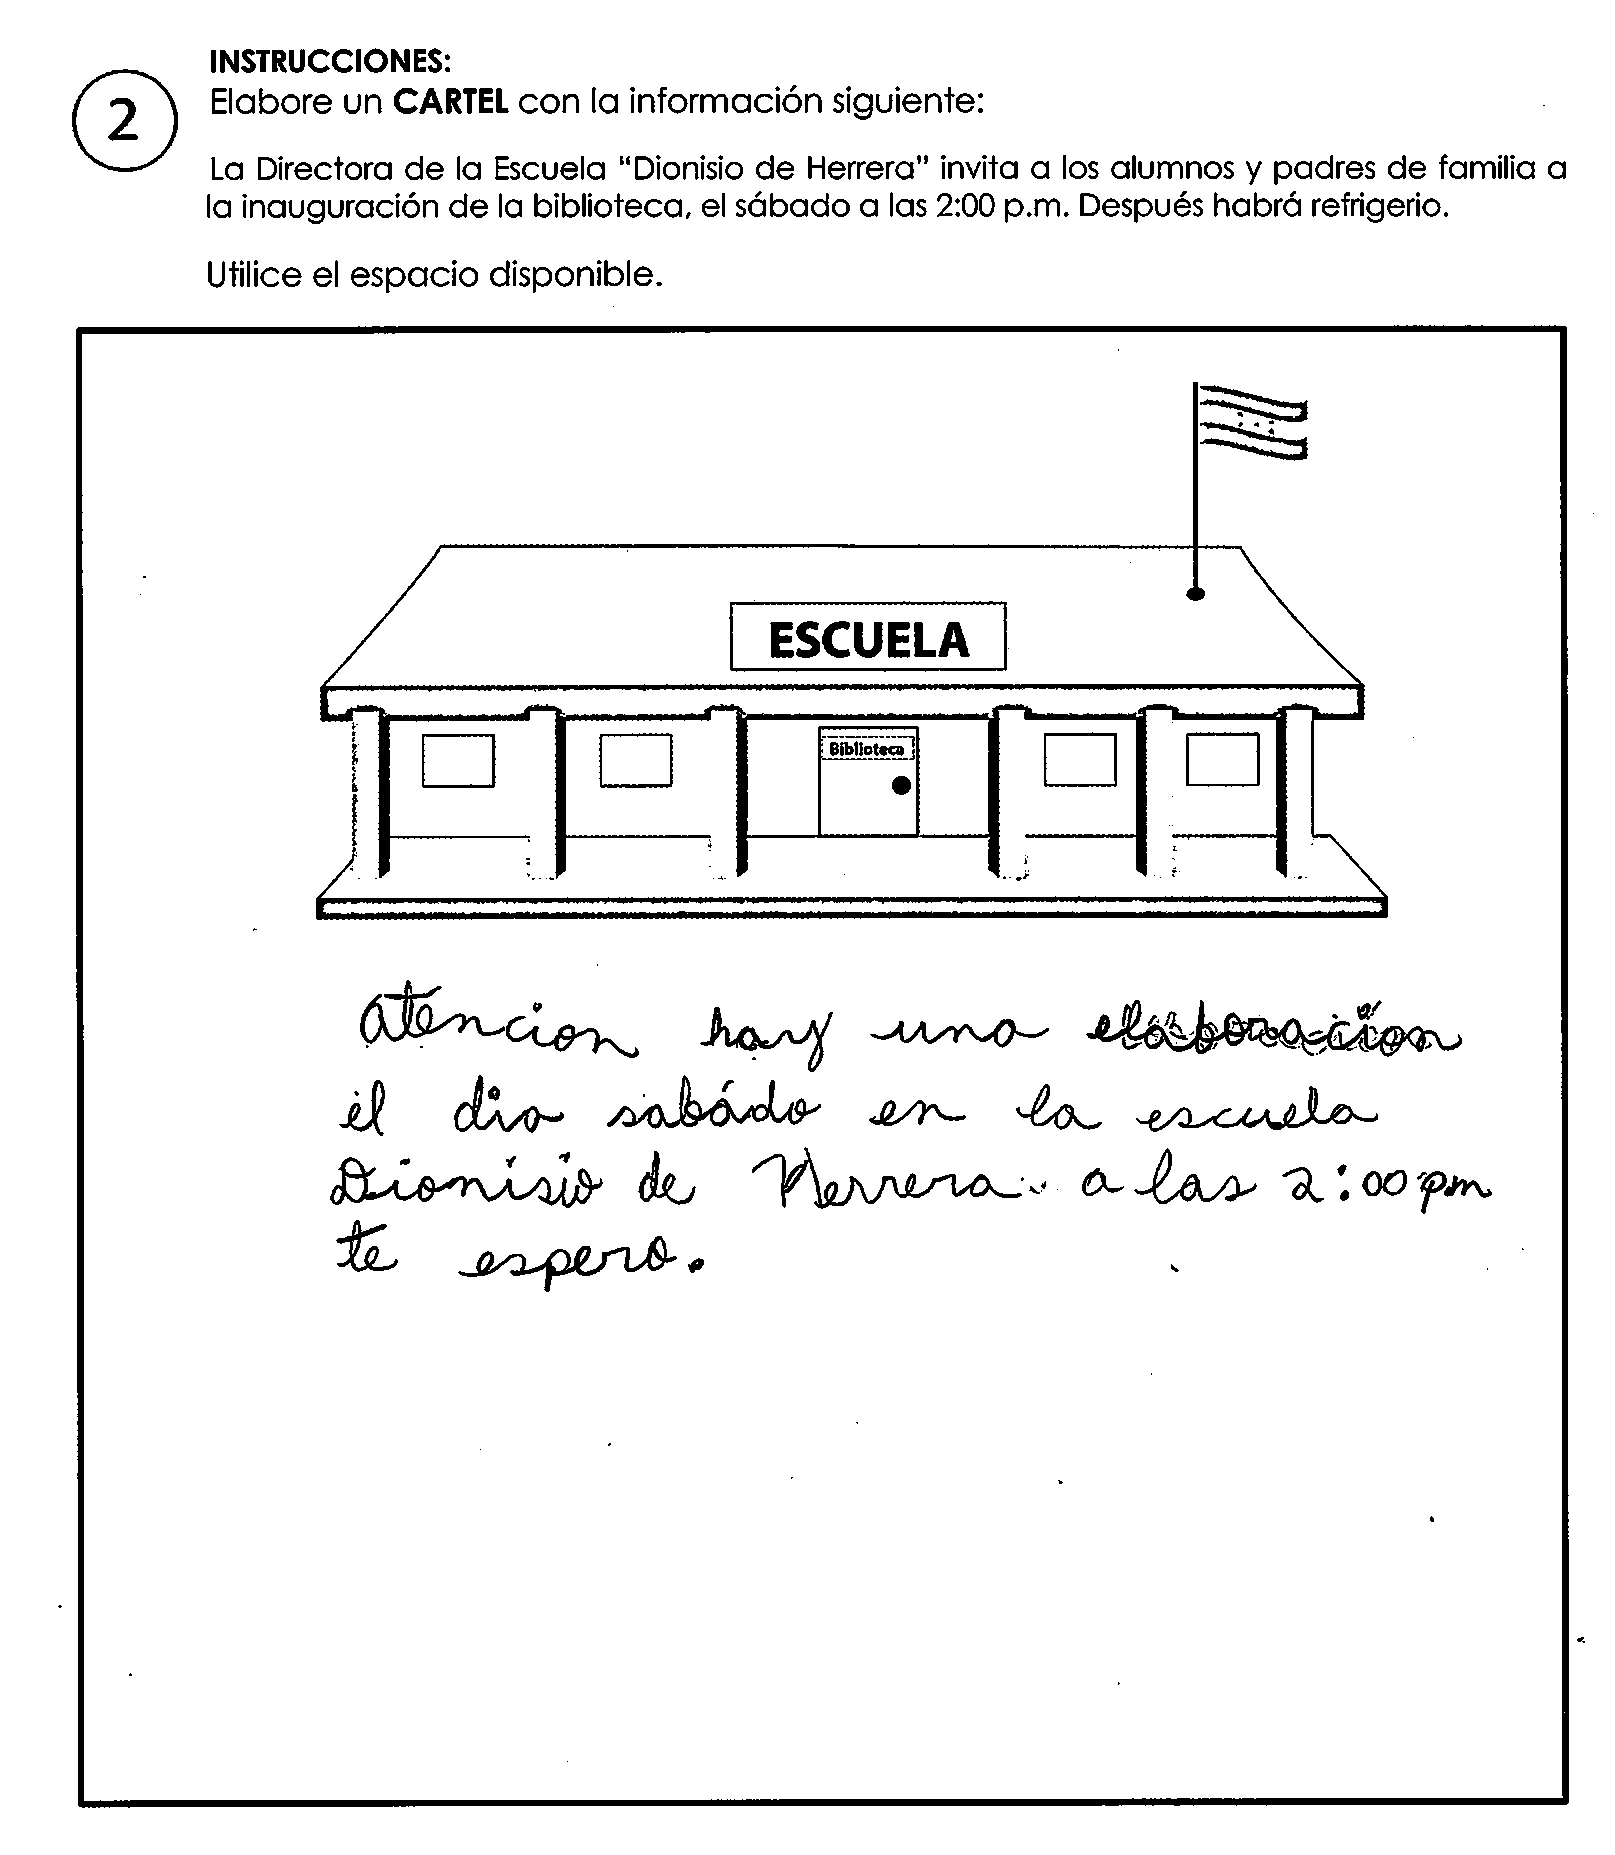 INSTRUCCIONES:
2
Elabore un CARTEL con la información siguiente:
La Directora de la Escuela "Dionisio de Herrera" invita a los alumnos y padres de familia a
la inauguración de la biblioteca, el sábado a las 2:00 p.m. Después habrá refrigerio.
Utilice el espacio disponible.
ESCUELA
Biblioteca
atencion hay una elaboracion
el dia sabádo en la escuela
Dionisio de Herrera a las 2:00 pm
te espero.